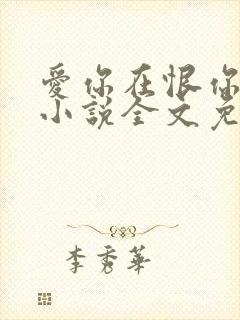 愛你在恨你
小說全文免
李秀華